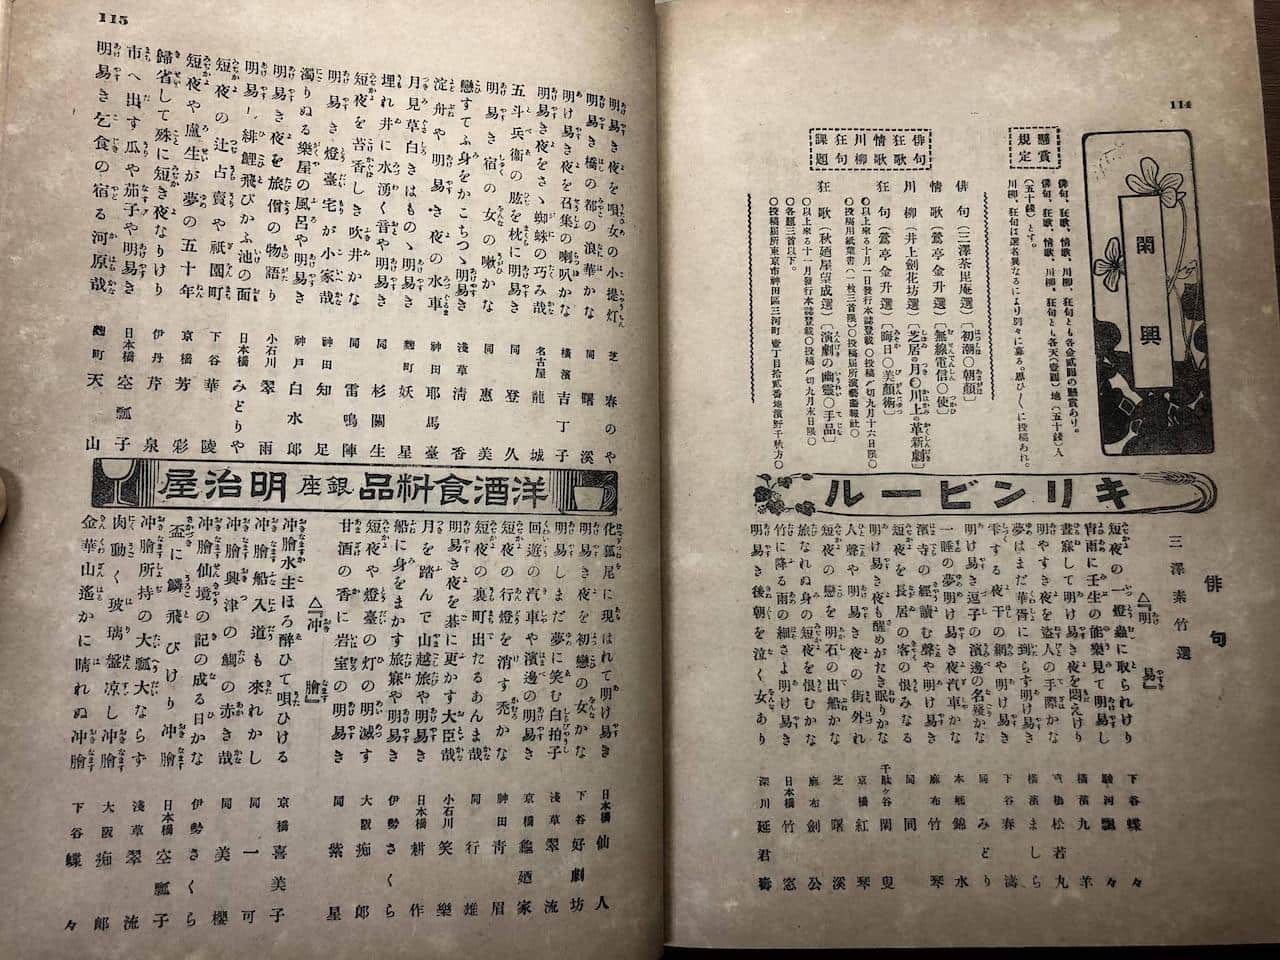 114
閑興
懸賞規定
俳句、狂歌、情歌、川柳、狂句とも各金貳圓の懸賞あり。
俳句、狂歌、情歌、川柳、狂句とも各天(壹圓)地(五十錢)人
(五十錢)とす。
川柳、狂句は選者異なるにより別々に募る。思ひ〳〵に投稿あれ。
俳句
狂歌
川柳
情歌
狂句
課題
俳句(三澤茶毘庵選)〔初潮〇朝顏〕
情歌(鶯亭金升選)〔無線電信〇使〕
川柳(井上劍花坊選)〔芝居の月〇川上の革新劇〕
狂句(鶯亭金升選)〔晦日〇美顏術〕
〇以上來る十月一日發行本誌登載〇投稿〆切九月十六日限〇
〇投稿用紙葉書(一枚三首限)〇投稿屆所演藝畫報社〇
狂歌(秋廼屋望成選)〔演劇の幽靈〇手品〕
〇以上來る十一月發行本誌登載〇投稿〆切九月末日限〇
〇各題三首以下。
〇投稿屆所東京市神田區三河町壹丁目拾貳番地濱野千秋方〇
キリンビール
俳句
三澤素竹選
△『明易』
短夜の一燈蟲に取られけり 下谷 蝶々
宵雨に壬生の能樂見て明易し 駿河 飄々
晝寐して明け易き夜を悶えけり 橫濱 九羊
明やすき夜を盜人の手際かな 松若丸
夢はまだ華胥に到らず明け易き 橫濱 ましら
雫する夜干の網や明け易き 下谷 春濤
明け易き逗子の濱邊の名殘かな 同 みどり
一睡の夢明け易き夜汽車かな 本鄉 錦水
濱寺の經讀む聲や明け易き 麻布 竹琴
短夜を長居の客の恨みなる 同 同
明け易き夜も醒めがたき眠りかな 千駄ヶ谷 閑叟
人聲や明易き夜の街外れ 京橋 紅琴
短夜の戀を明石の出船かな 芝 曙溪
旅なれぬ身の短夜を恨むかな 麻布 劍公
竹に降る雨の細さよ明け易き 日本橋 竹窓
明易き後朝を泣く女あり 深川 延君壽
115
明易き夜を唄女の小提灯 芝 春のや
明易き橋の都の浪華かな 同 曙溪
明け易き夜を召集の喇叭かな 橫濱 吉丁子
明易き夜をさゝ蜘蛛の巧み哉 名古屋 龍城
五斗兵衞の肱を枕に明易き 同 登久
明易き宿の女の嗽かな 同 惠美
戀すてふ身をかこちつゝ明易き 淺草 淸香
淀舟や明易き夜の水車 神田 耶馬臺
月見草白きはものゝ明易き 麴町 妖星
埋れ井に水湧く音や明易き 同 杉關生
短夜を苦香しき吹井かな 同 雷鳴陣
明易き燈臺宅が小家哉 神田 知足
濁りぬる樂屋の風呂や明易き 神戶 白水郎
明易き夜を旅僧の物語り 小石川 翠雨
明易し緋鯉飛びかふ池の面 日本橋 みどりや
短夜の辻占賣や祇園町 下谷 華陵
短夜や盧生が夢の五十年 京橋 芳彩
歸省して殊に短き夜なりけり 伊丹 芹泉
市へ出す瓜や茄子や明易き 日本橋 空瓢子
明易き乞食の宿る河原哉 麴町 天山
洋酒食料品 銀座 明治屋
化狐尾に現はれて明け易き 日本橋 仙人
明易き夜を初戀の女かな 下谷 好劇坊
明易しまだ夢に笑む白拍子 淺草 翠流
回遊の汽車や濱邊の明易き 京橋 龜廼家
短夜の行燈を消す禿かな 神田 靑眉
短夜の裏町出たるあんま哉 同 行雄
明易き夜を碁に更かす大臣哉 小石川 笑樂
月を踏んで山越旅や明易き 日本橋 耕作
船に身をまかす旅寐や明易き 伊勢 さくら
短夜や燈臺の灯の明滅す 大阪 痴郎
甘酒の香に岩室の明易き 同 紫星
△『冲膾』
冲膾水主ほろ醉ひて唄ひける 京橋 喜美子
冲膾船入道も來れかし 同 一可
冲膾興津の鯛の赤き哉 同 美櫻
冲膾仙境の記の成る日かな 伊勢 さくら
盃に鱗飛びけり冲膾 日本橋 空瓢子
冲膾所持の大瓢大ならず 淺草 翠流
肉動く玻璃盤凉し冲膾 大阪 痴郎
金華山遙かに晴れぬ冲膾 下谷 蝶々